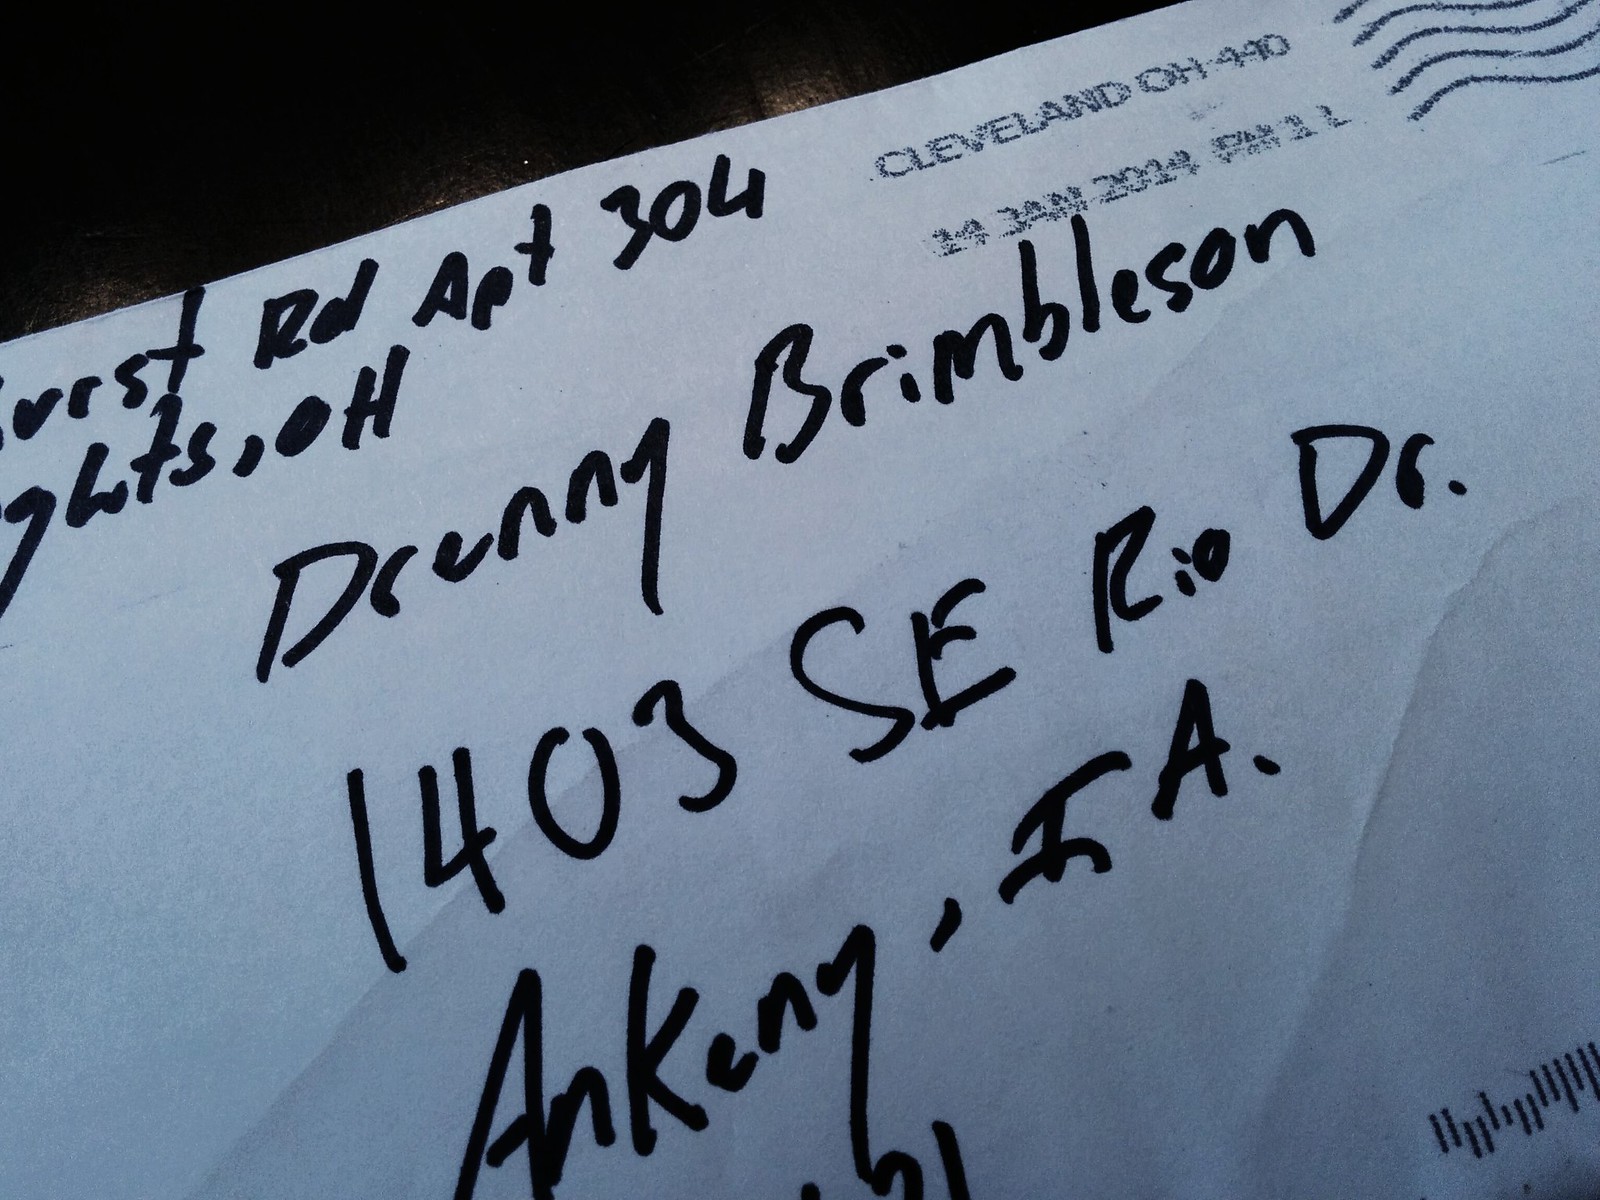 CLEVELAND OH 440
14 JAN 2014 PM 1 L
Rd Apt 304
OH
Drenny Brimbleson
1403 SE Rio Dr.
Ankeny, IA.